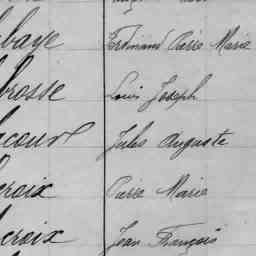 baye Ferdinand Pierre Marie
brosse Louis Joseph
cour Jules Auguste
croix Pierre Marie
croix Jean François